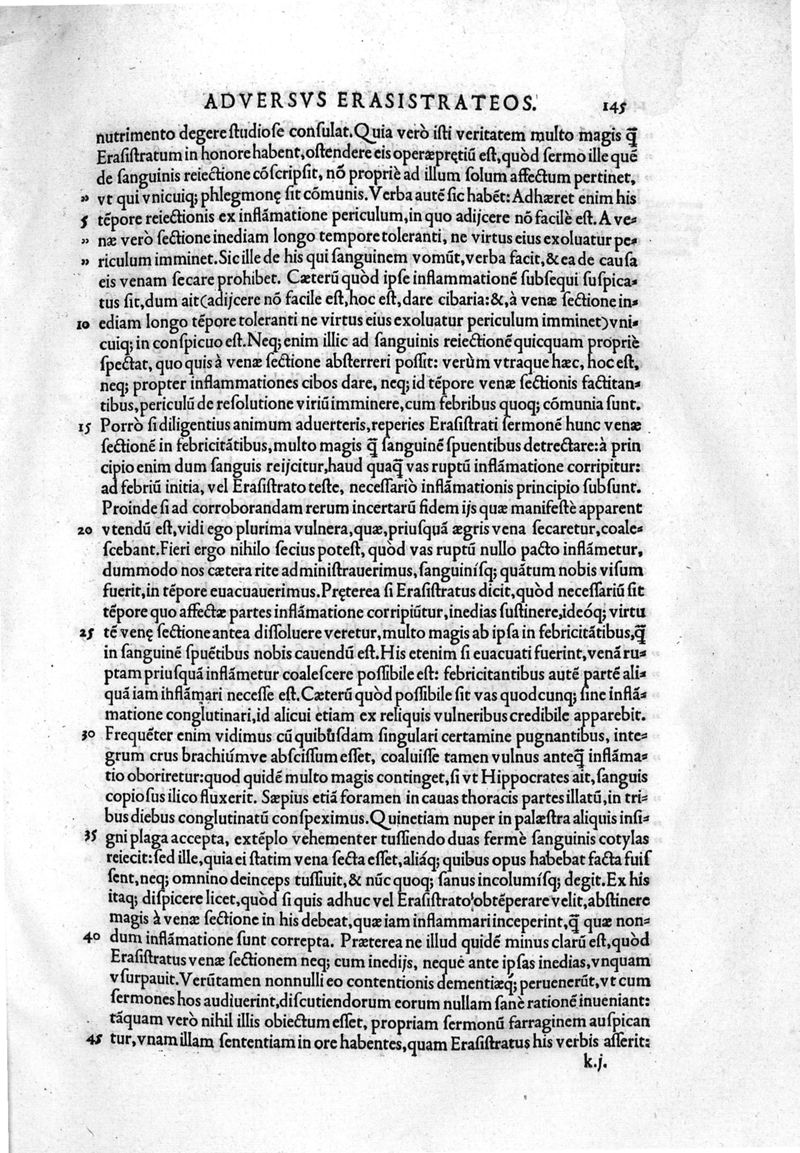 ADVERSVS ERASISTRATEOS. 145
nutrimento degere ſtudioſe conſulat. Quia verò iſti veritatem multo magis q̃
Eraſiſtratum in honore habent, oſtendere eis operæprętiũ eſt, quòd ſermo ille quẽ
de ſanguinis reiectione cõſcripſit, nõ propriè ad illum ſolum affectum pertinet,
„ vt qui vnicuiq; phlegmonę ſit cõmunis. Verba autẽ ſic habẽt: Adhæret enim his
5 tẽpore reiectionis ex inflãmatione periculum, in quo adijcere nõ facilè eſt. A ve⸗
„ næ verò ſectione inediam longo tempore toleranti, ne virtus eius exoluatur pe⸗
„ riculum imminet. Sic ille de his qui ſanguinem vomũt, verba facit, & ea de cauſa
eis venam ſecare prohibet. Cæterũ quòd ipſe inflammationẽ ſubſequi ſuſpica⸗
tus ſit, dum ait (adijcere nõ facile eſt, hoc eſt, dare cibaria: &, à venæ ſectione in⸗
10 ediam longo tẽpore toleranti ne virtus eius exoluatur periculum imminet) vni⸗
cuiq; in conſpicuo eſt. Neq; enim illic ad ſanguinis reiectionẽ quicquam propriè
ſpectat, quo quis à venæ ſectione abſterreri poſſit: verùm vtraque hæc, hoc eſt,
neq; propter inflammationes cibos dare, neq; id tẽpore venæ ſectionis factitan⸗
tibus, periculũ de reſolutione viriũ imminere, cum febribus quoq; cõmunia ſunt.
15 Porrò ſi diligentius animum aduerteris, reperies Eraſiſtrati ſermonẽ hunc venæ
ſectionẽ in febricitãtibus, multo magis q̃ ſanguinẽ ſpuentibus detrectare: à prin
cipio enim dum ſanguis reijcitur, haud quaq̃ vas ruptũ inflãmatione corripitur:
ad febriũ initia, vel Eraſiſtrato teſte, neceſſariò inflãmationis principio ſubſunt.
Proinde ſi ad corroborandam rerum incertarũ fidem ijs quæ manifeſtè apparent
20 vtendũ eſt, vidi ego plurima vulnera, quæ, priuſquã ægris vena ſecaretur, coale⸗
ſcebant. Fieri ergo nihilo ſecius poteſt, quòd vas ruptũ nullo pacto inflãmetur,
dummodo nos cætera rite adminiſtrauerimus, ſanguiníſq; quãtum nobis viſum
fuerit, in tẽpore euacuauerimus. Pręterea ſi Eraſiſtratus dicit, quòd neceſſariũ ſit
tẽpore quo affectæ partes inflãmatione corripiũtur, inedias ſuſtinere, ideóq; virtu
25 tẽ venę ſectione antea diſſoluere veretur, multo magis ab ipſa in febricitãtibus, q̃
in ſanguinẽ ſpuẽtibus nobis cauendũ eſt. His etenim ſi euacuati fuerint, venã ru⸗
ptam priuſquã inflãmetur coaleſcere poſſibile eſt: febricitantibus autẽ partẽ ali⸗
quã iam inflãmari neceſſe eſt. Cæterũ quòd poſſibile ſit vas quodcunq; ſine inflã⸗
matione conglutinari, id alicui etiam ex reliquis vulneribus credibile apparebit.
30 Frequẽter enim vidimus cũ quibuſdam ſingulari certamine pugnantibus, inte⸗
grum crus brachiúmve abſciſſum eſſet, coaluiſſe tamen vulnus anteq̃ inflãma⸗
tio oboriretur: quod quidẽ multo magis continget, ſi vt Hippocrates ait, ſanguis
copioſus ilico fluxerit. Sæpius etiã foramen in cauas thoracis partes illatũ, in tri⸗
bus diebus conglutinatũ conſpeximus. Quinetiam nuper in palæſtra aliquis inſi⸗
35 gni plaga accepta, extẽplo vehementer tuſſiendo duas fermè ſanguinis cotylas
reiecit: ſed ille, quia ei ſtatim vena ſecta eſſet, aliáq; quibus opus habebat facta fuiſ
ſent, neq; omnino deinceps tuſſiuit, & nũc quoq; ſanus incolumíſq; degit. Ex his
itaq; diſpicere licet, quòd ſi quis adhuc vel Eraſiſtrato obtẽperare velit, abſtinere
magis à venæ ſectione in his debeat, quæ iam inflammari inceperint, q̃ quæ non⸗
40 dum inflãmatione ſunt correpta. Præterea ne illud quidẽ minus clarũ eſt, quòd
Eraſiſtratus venæ ſectionem neq; cum inedijs, neque ante ipſas inedias, vnquam
vſurpauit. Verũtamen nonnulli eo contentionis dementiæq; peruenerũt, vt cum
ſermones hos audiuerint, diſcutiendorum eorum nullam ſanè rationẽ inueniant:
tãquam vero nihil illis obiectum eſſet, propriam ſermonũ farraginem auſpican
45 tur, vnam illam ſententiam in ore habentes, quam Eraſiſtratus his verbis aſſerit:
k.j.